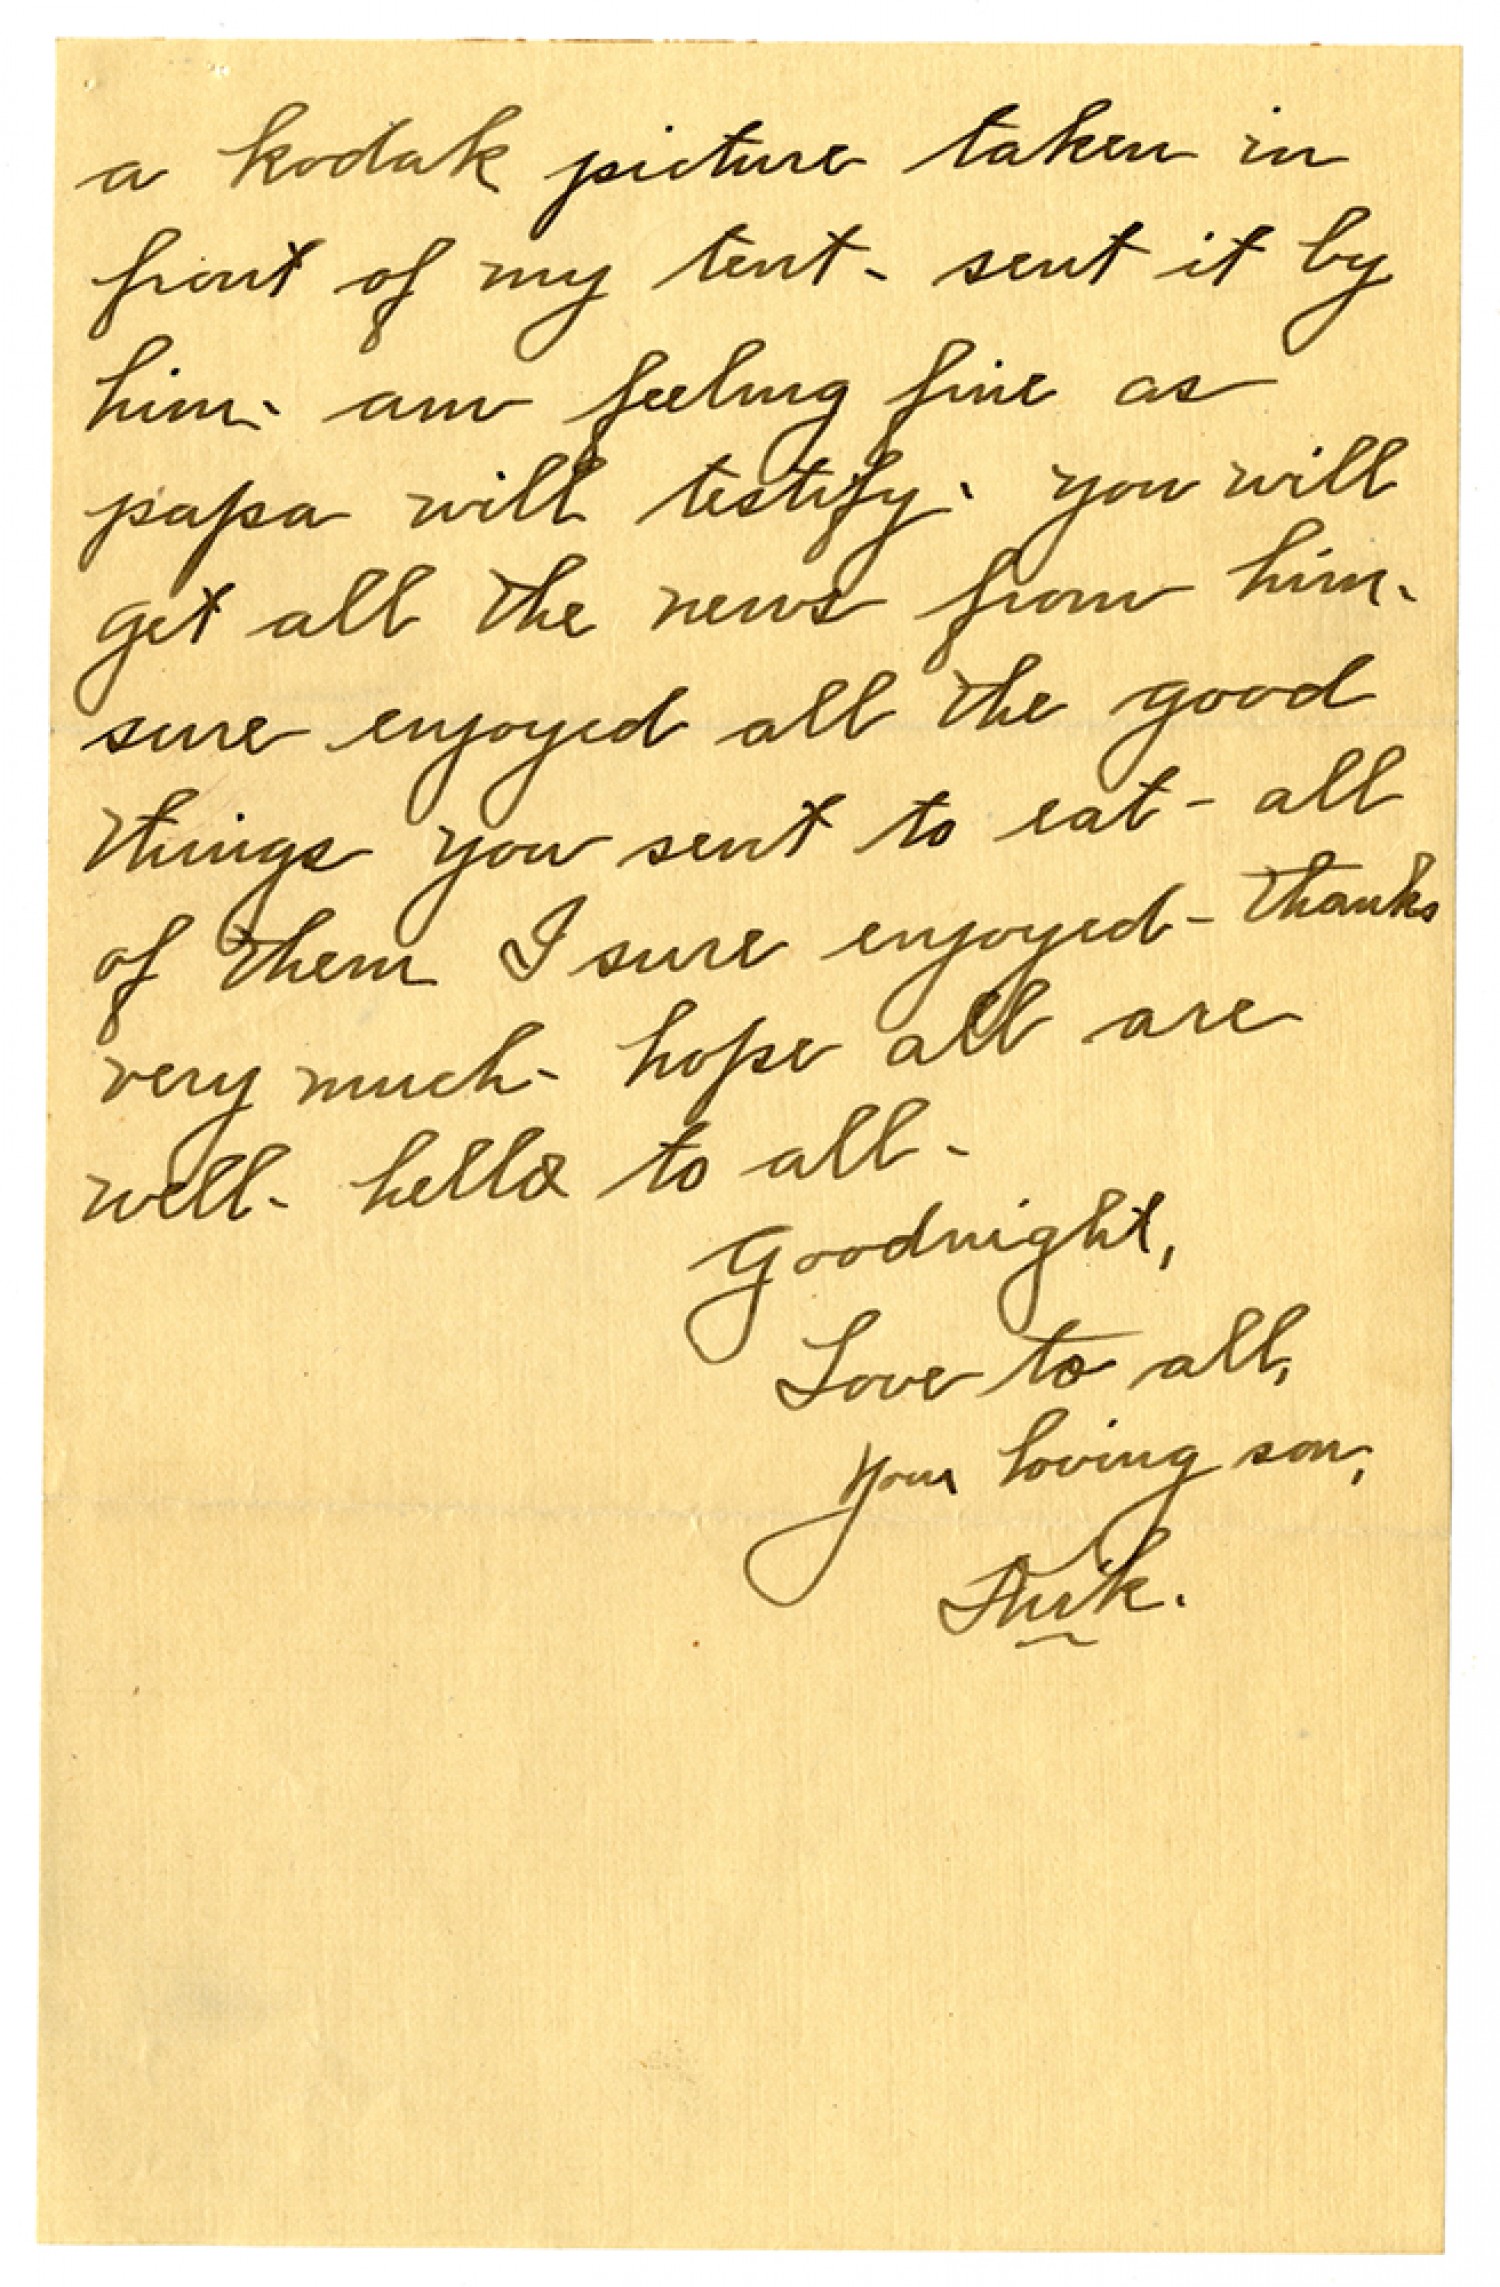 a kodak picture taken in
front of my tent - sent it by
him - am feeling fine as
papa will testify - you will
get all the news from him -
sure enjoyed all the good
things you sent to eat - all
of them I sure enjoyed - thanks
very much - hope all are
well - hello to all -
Goodnight,
Love to all,
Your loving son,